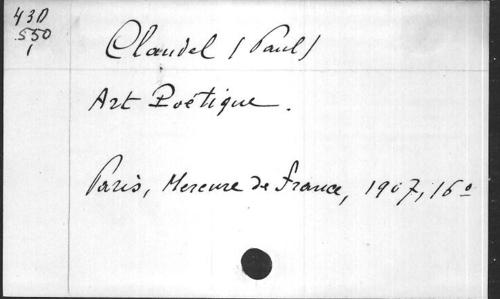 43D
550
1
Claudel (Paul)
Art Poétique.
Paris, Mercure de France, 1907, 16º